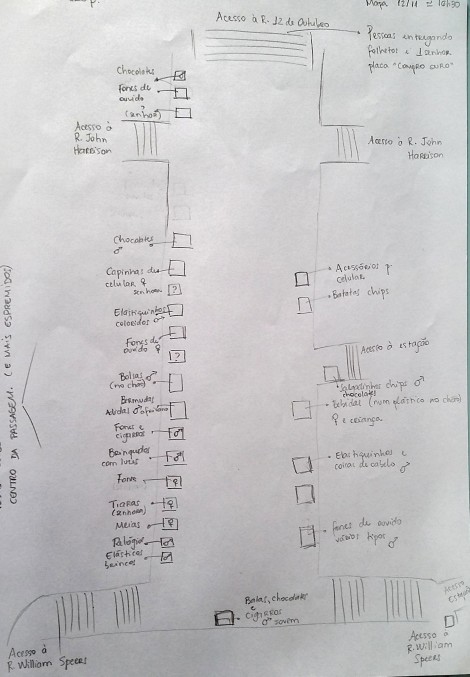 Mapa 12/11
Acesso à R. 12 de Outubro
Pessoas entregando
folhetos e 1 senhor
placa "COMPRO OURO"
Chocolates
fones de
ouvido
?
(senhor)
Acesso à
R. John
Harrison
Acesso à R. John
Harrison
Chocolates
♂
Capinhas de
celular ♀
senhora
?
Elastiquinhos
coloridos ♂
Fones de
ouvido ♀
?
Bolsas ♂
(no chão)
Bermudas
♂
Fones e
cigarros
♂
Brinquedos
com luzes
♂
Fone
♀
Tiaras
(senhora)
♀
Meias
♀
Relógio
♂
Elásticos
brincos
♂
CENTRO DA PASSAGEM. (E MAIS ESPREMIDOS)
Acessórios p
celular
Batatas chips
Acesso à estação
chips ♂
chocolates
Bebidas (num plástico no chão)
♀ e criança
Elastiquinhos e
coisas de cabelo ♂
fones de ouvido
vários tipos ♂
Balas, chocolates
e
cigarros
♂ jovem
Acesso à
R. William Speers
Acesso à
R. William
Speers